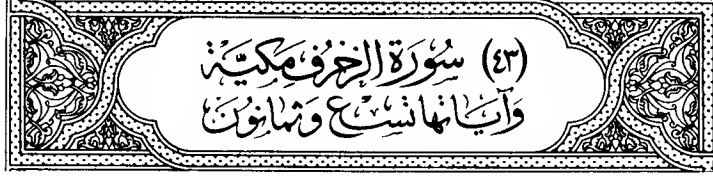 (٤٣) سُورَةُ الزُّخْرُفِ مَكِّيَّةٌ
وَآيَاتُهَا تِسْعٌ وَثَمَانُونَ